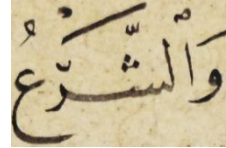 وَالشَّرْعُ